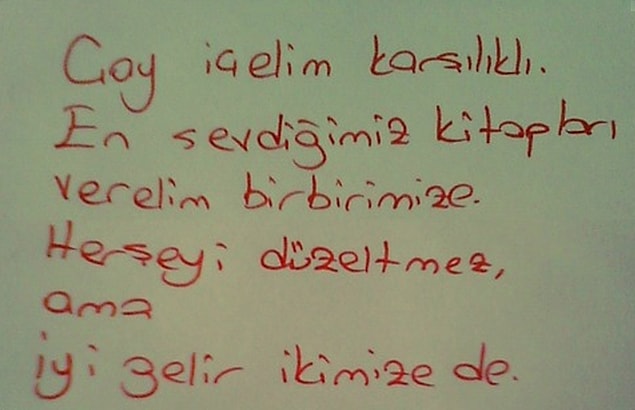 Çay içelim karşılıklı.
En sevdiğimiz kitapları
verelim birbirimize.
Herşeyi düzeltmez,
ama
iyi gelir ikimize de.